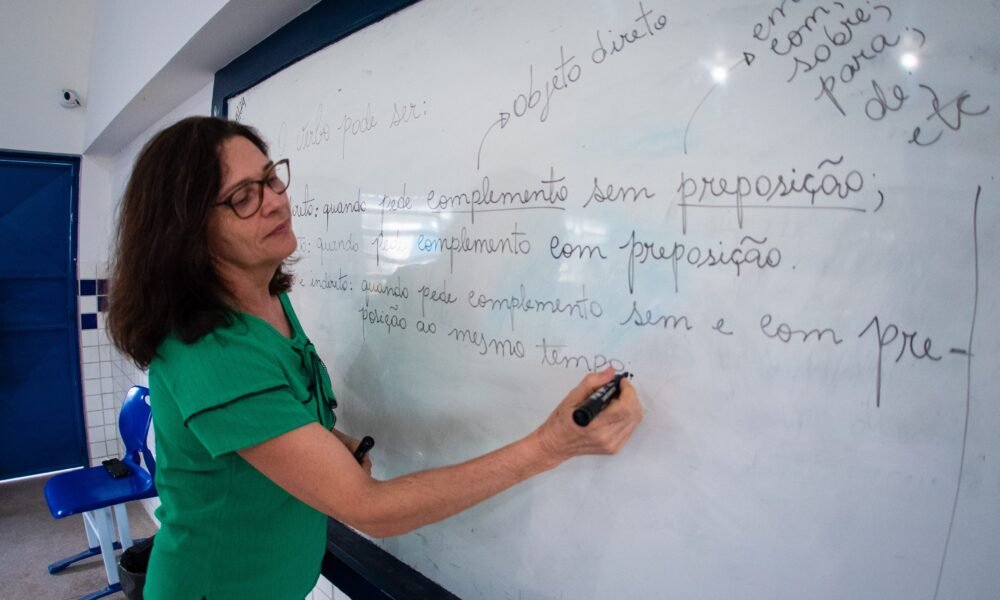 em,
com,
sobre;
para;
de
etc
objeto direto
O verbo pode ser:
quando pede complemento sem preposição;
quando pede complemento com preposição.
e indireto: quando pede complemento sem e com pre-
posição ao mesmo tempo.